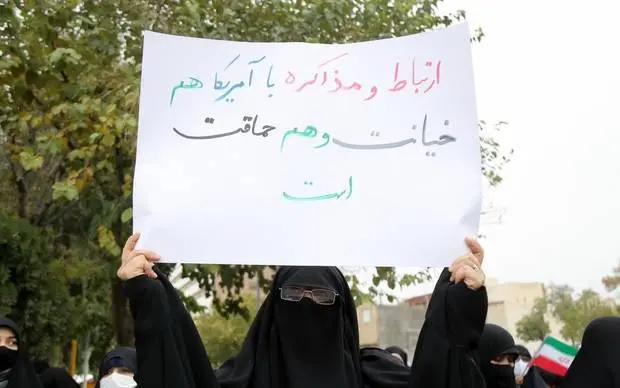 ارتباط و مذاکره با آمریکا هم
خیانت و هم حماقت
است